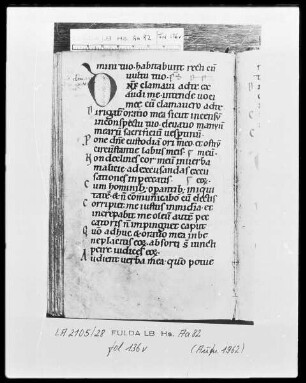 LB Hs. Aa 82 fol 136v
mini tuo. habitabunt recti cu
uultu tuo.
Dne clamaui ad te ex
audi me intende uoci
mee cu clamauero ad te
Dirigat oratio mea sicut incensu
in conspectu tuo eleuatio manuu
mearu sacrificiu uesptinu
Pone dne custodia ori meo et ostiu
circumstantie labiis meis
Non declines cor meu in uerba
malicie ad excusandas excu
sationes in peccatis
Cum hominib; opantib; iniqui
tate & n comunicabo cu electis
Corripiet me iustus in mia et
increpabit me oleu aute pec
catoris n inpinguet caput
quo adhuc & oratio mea in be
neplacitis eoz absorti s iuncti
petre iudices eoz
Audient uerba mea quo potue
LA 2105/28 FULDA LB Hs. Aa 82
fol 136v (Aufn. 1962)